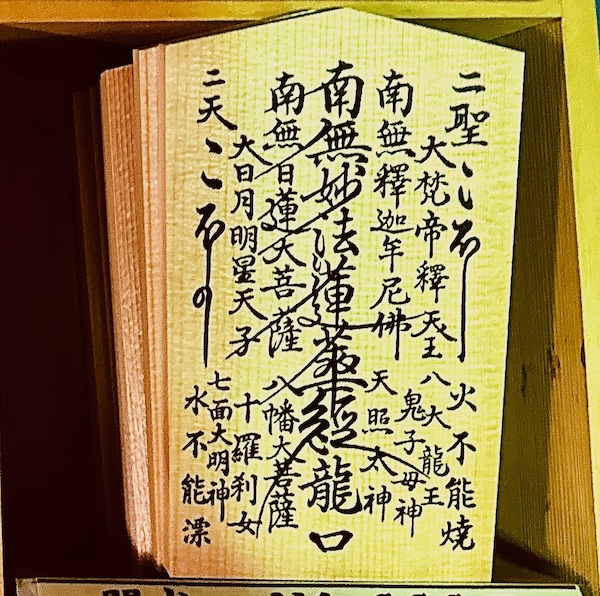 二聖
火不能燒
大梵帝釋天王
八大龍王
鬼子母神
南無釋迦牟尼佛
天照太神
南無妙法蓮華經
龍口
南無日蓮大菩薩
八幡大菩薩
大日月明星天子
十羅刹女
七面大明神
二天
水不能漂